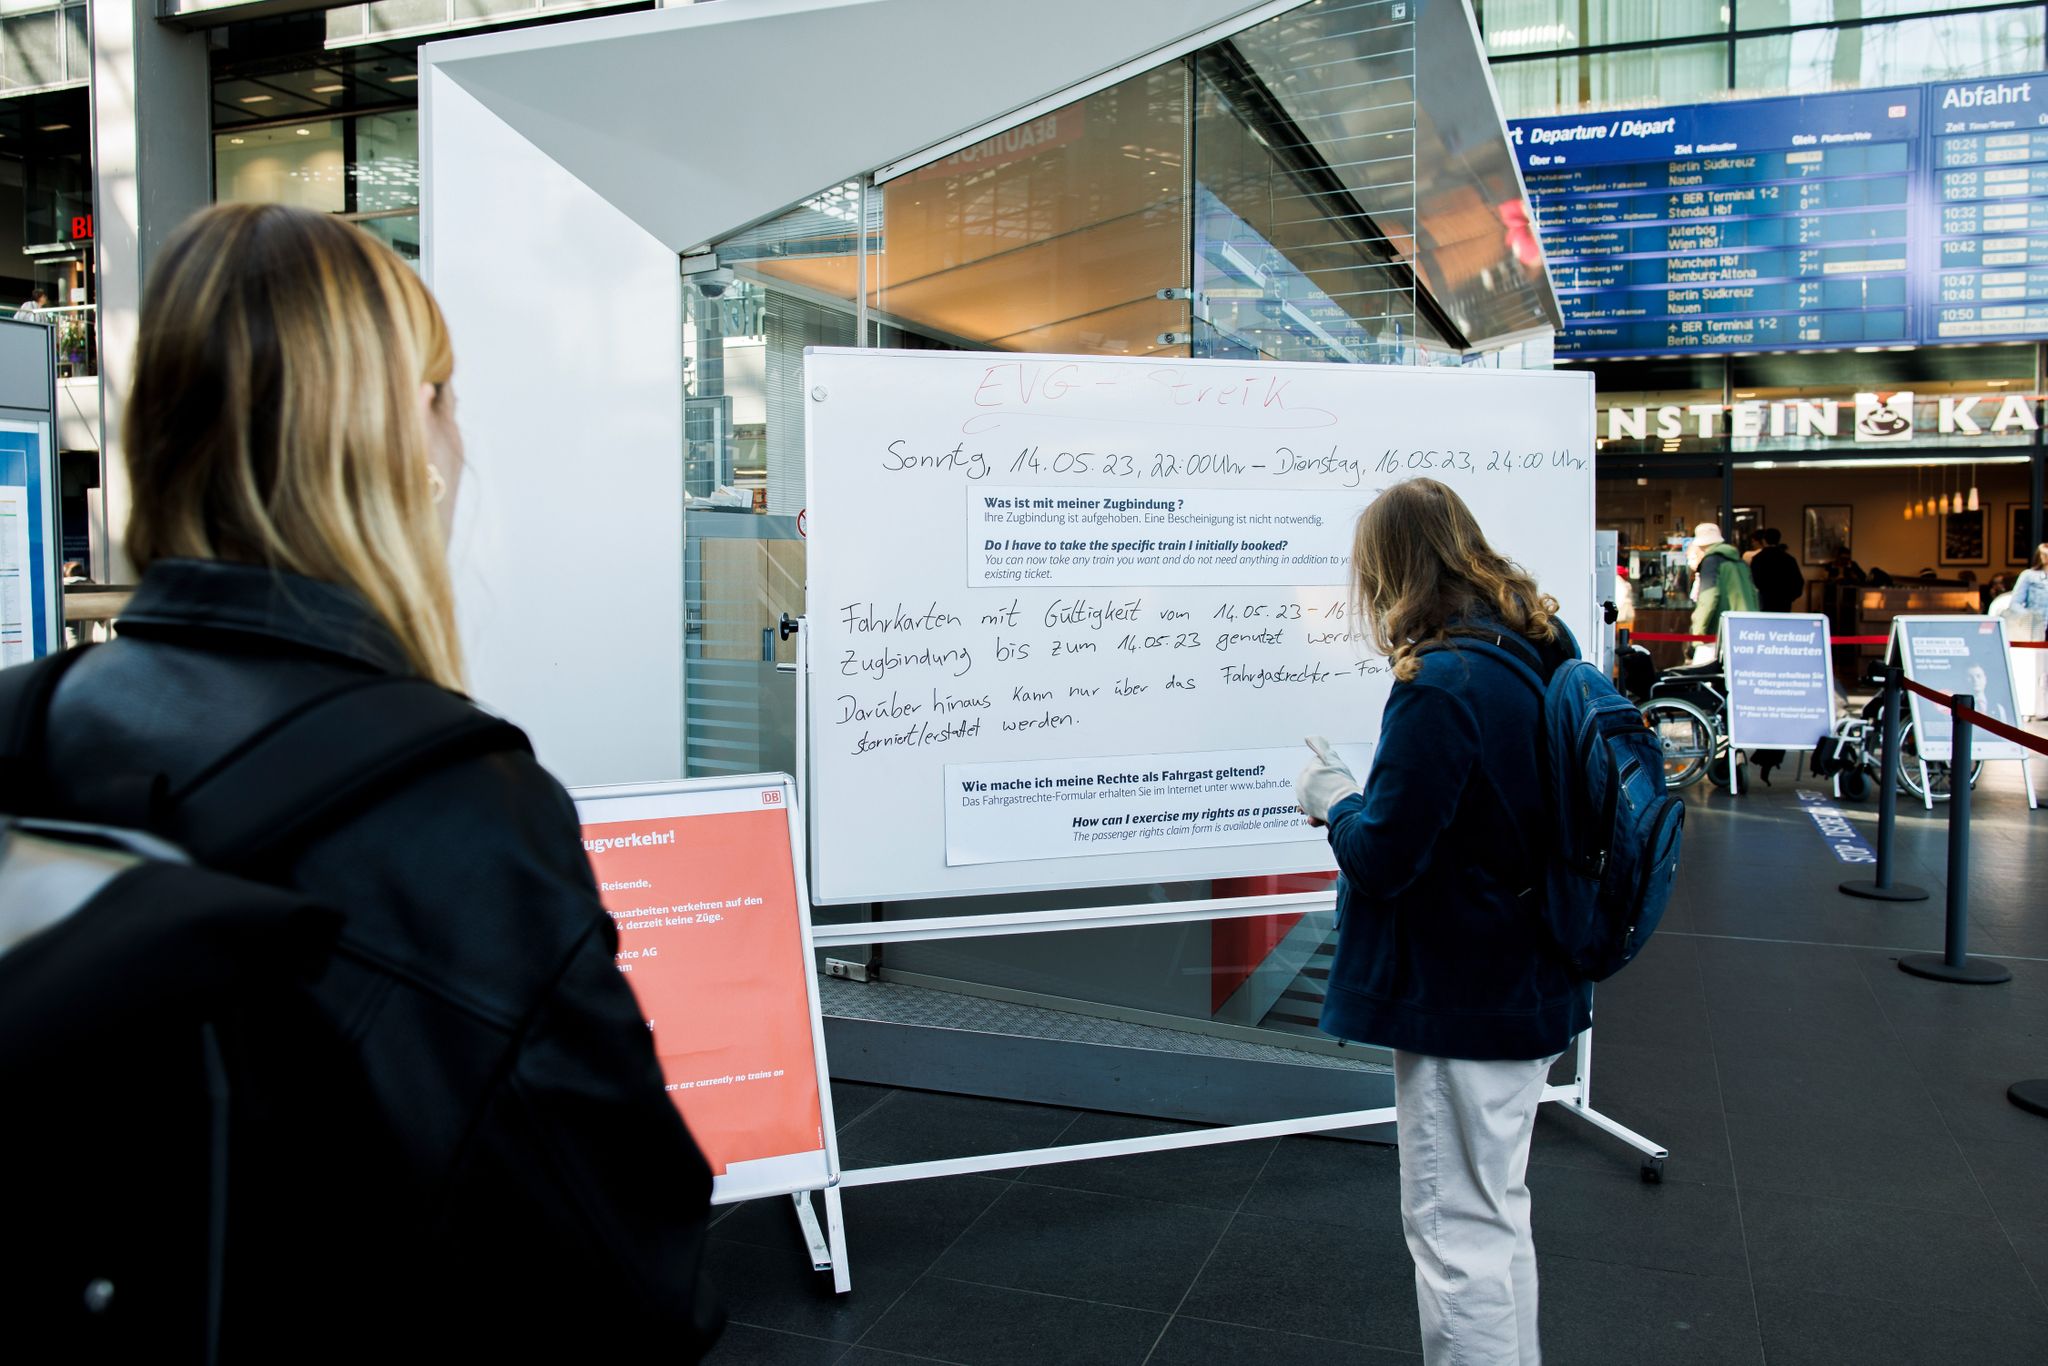 EVG - Streik
Sonntg, 14.05.23, 22:00 Uhr – Dienstag, 16.05.23, 24:00 Uhr.
Was ist mit meiner Zugbindung?
Ihre Zugbindung ist aufgehoben. Eine Bescheinigung ist nicht notwendig.
Do I have to take the specific train I initially booked?
You can now take any train you want and do not need anything in addition to
existing ticket.
Fahrkarten mit Gültigkeit vom 14.05.23 – 16.0
Zugbindung bis zum 14.05.23 genutzt werden
Darüber hinaus kann nur über das Fahrgastrechte-For
storniert/erstattet werden.
Wie mache ich meine Rechte als Fahrgast geltend?
Das Fahrgastrechte-Formular erhalten Sie im Internet unter www.bahn.de.
How can I exercise my rights as a passen
The passenger rights claim form is available online at w
DB
ugverkehr!
Reisende,
Bauarbeiten verkehren auf den
4 derzeit keine Züge.
vice AG
am
ere are currently no trains on
rt Departure / Départ
Über Via Ziel Destination Gleis Platform/Voie
Berlin Südkreuz
Nauen 7
BER Terminal 1-2 4
Stendal Hbf 8
Jüterbog 3
Wien Hbf 2
München Hbf 2
Hamburg-Altona 7
Berlin Südkreuz 4
Nauen 7
BER Terminal 1-2 6
Berlin Südkreuz 4
Abfahrt
Zeit Time/Temps
10:24
10:26
10:29
10:32
10:32
10:33
10:42
10:47
10:48
10:50
NSTEIN KA
Kein Verkauf
von Fahrkarten
Fahrkarten erhalten Sie
im 1. Obergeschoss im
Reisezentrum
Tickets can be purchased on the
1st floor in the Travel Center